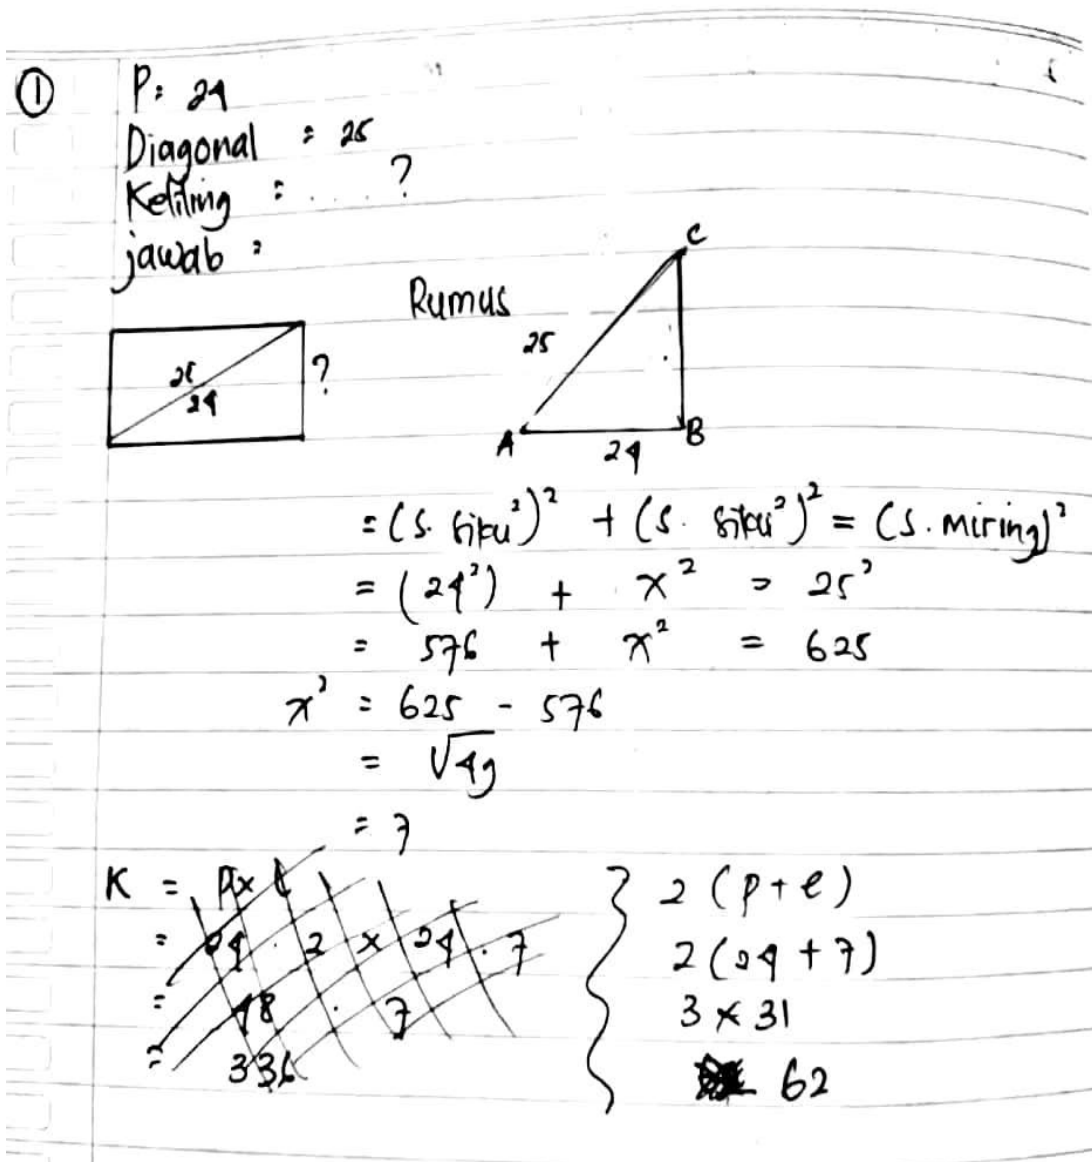 ① P: 24
Diagonal = 25
Keliling : .... ?
jawab :
Rumus
25
24
?
C
25
A
24
B
= (s. siku²)² + (s. siku²)² = (s. miring)²
= (24²) + x² = 25²
= 576 + x² = 625
x² = 625 - 576
= √49
= 7
K = p x l
= 24 . 2 x 24 . 7
= 48 . 7
= 336
2 (p + l)
2 (24 + 7)
3 x 31
62